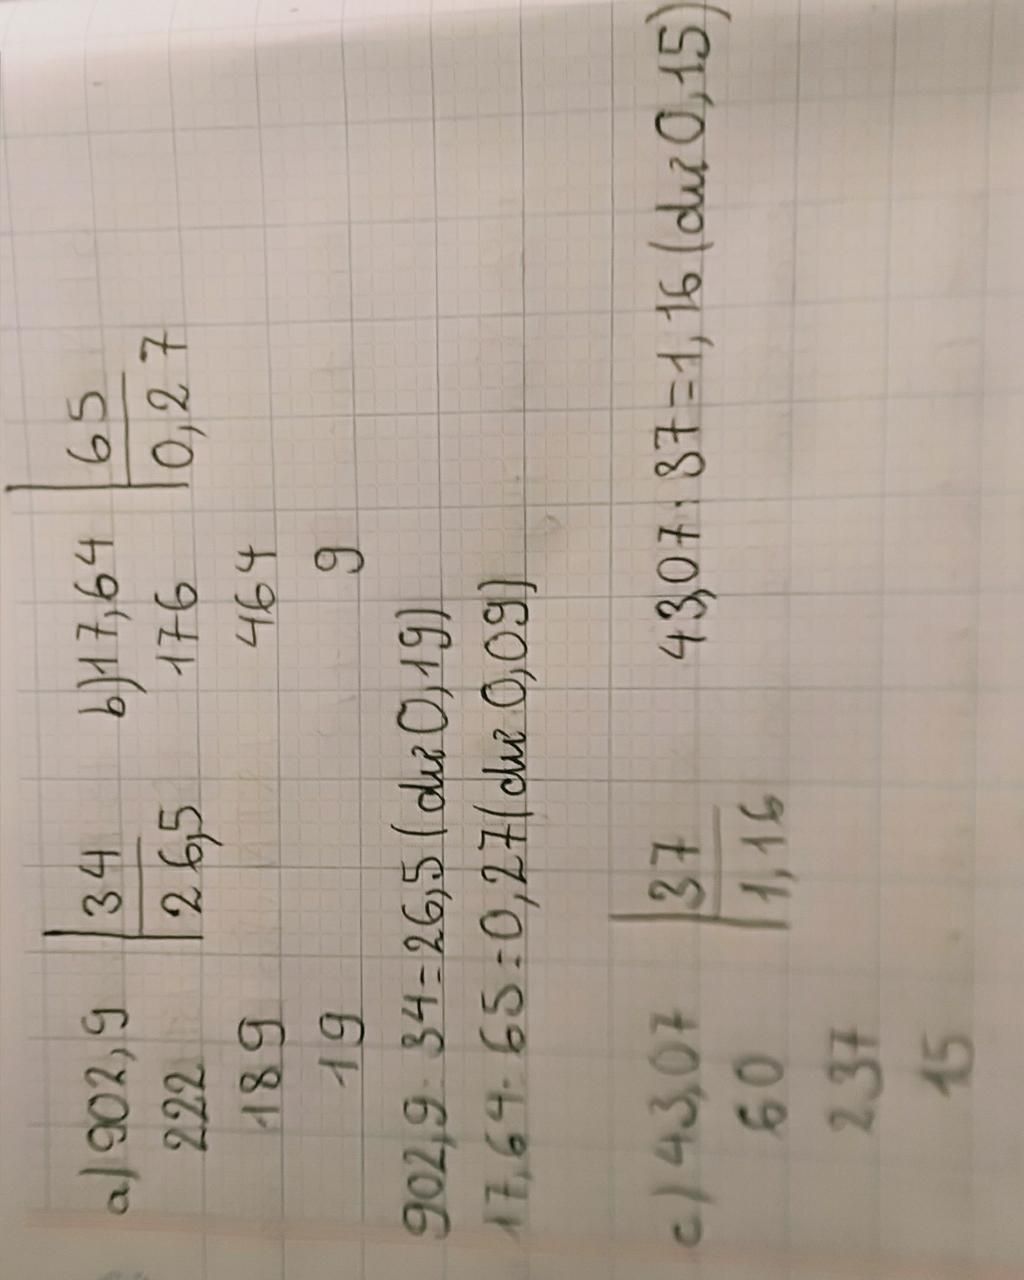 a) 902,9 | 34 b) 17,64 | 65
222 | 26,5 176 | 0,27
189 464
19 9
902,9 : 34 = 26,5 (dư 0,19)
17,64 : 65 = 0,27 (dư 0,09)
c) 43,07 | 37 43,07 : 37 = 1,16 (dư 0,15)
60 | 1,16
237
15